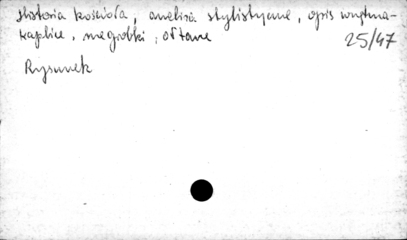 Historia kościoła, analiza stylistyczna, opis wnętrza-
kaplice, nagrobki, ołtarze
25/47
Rysunek